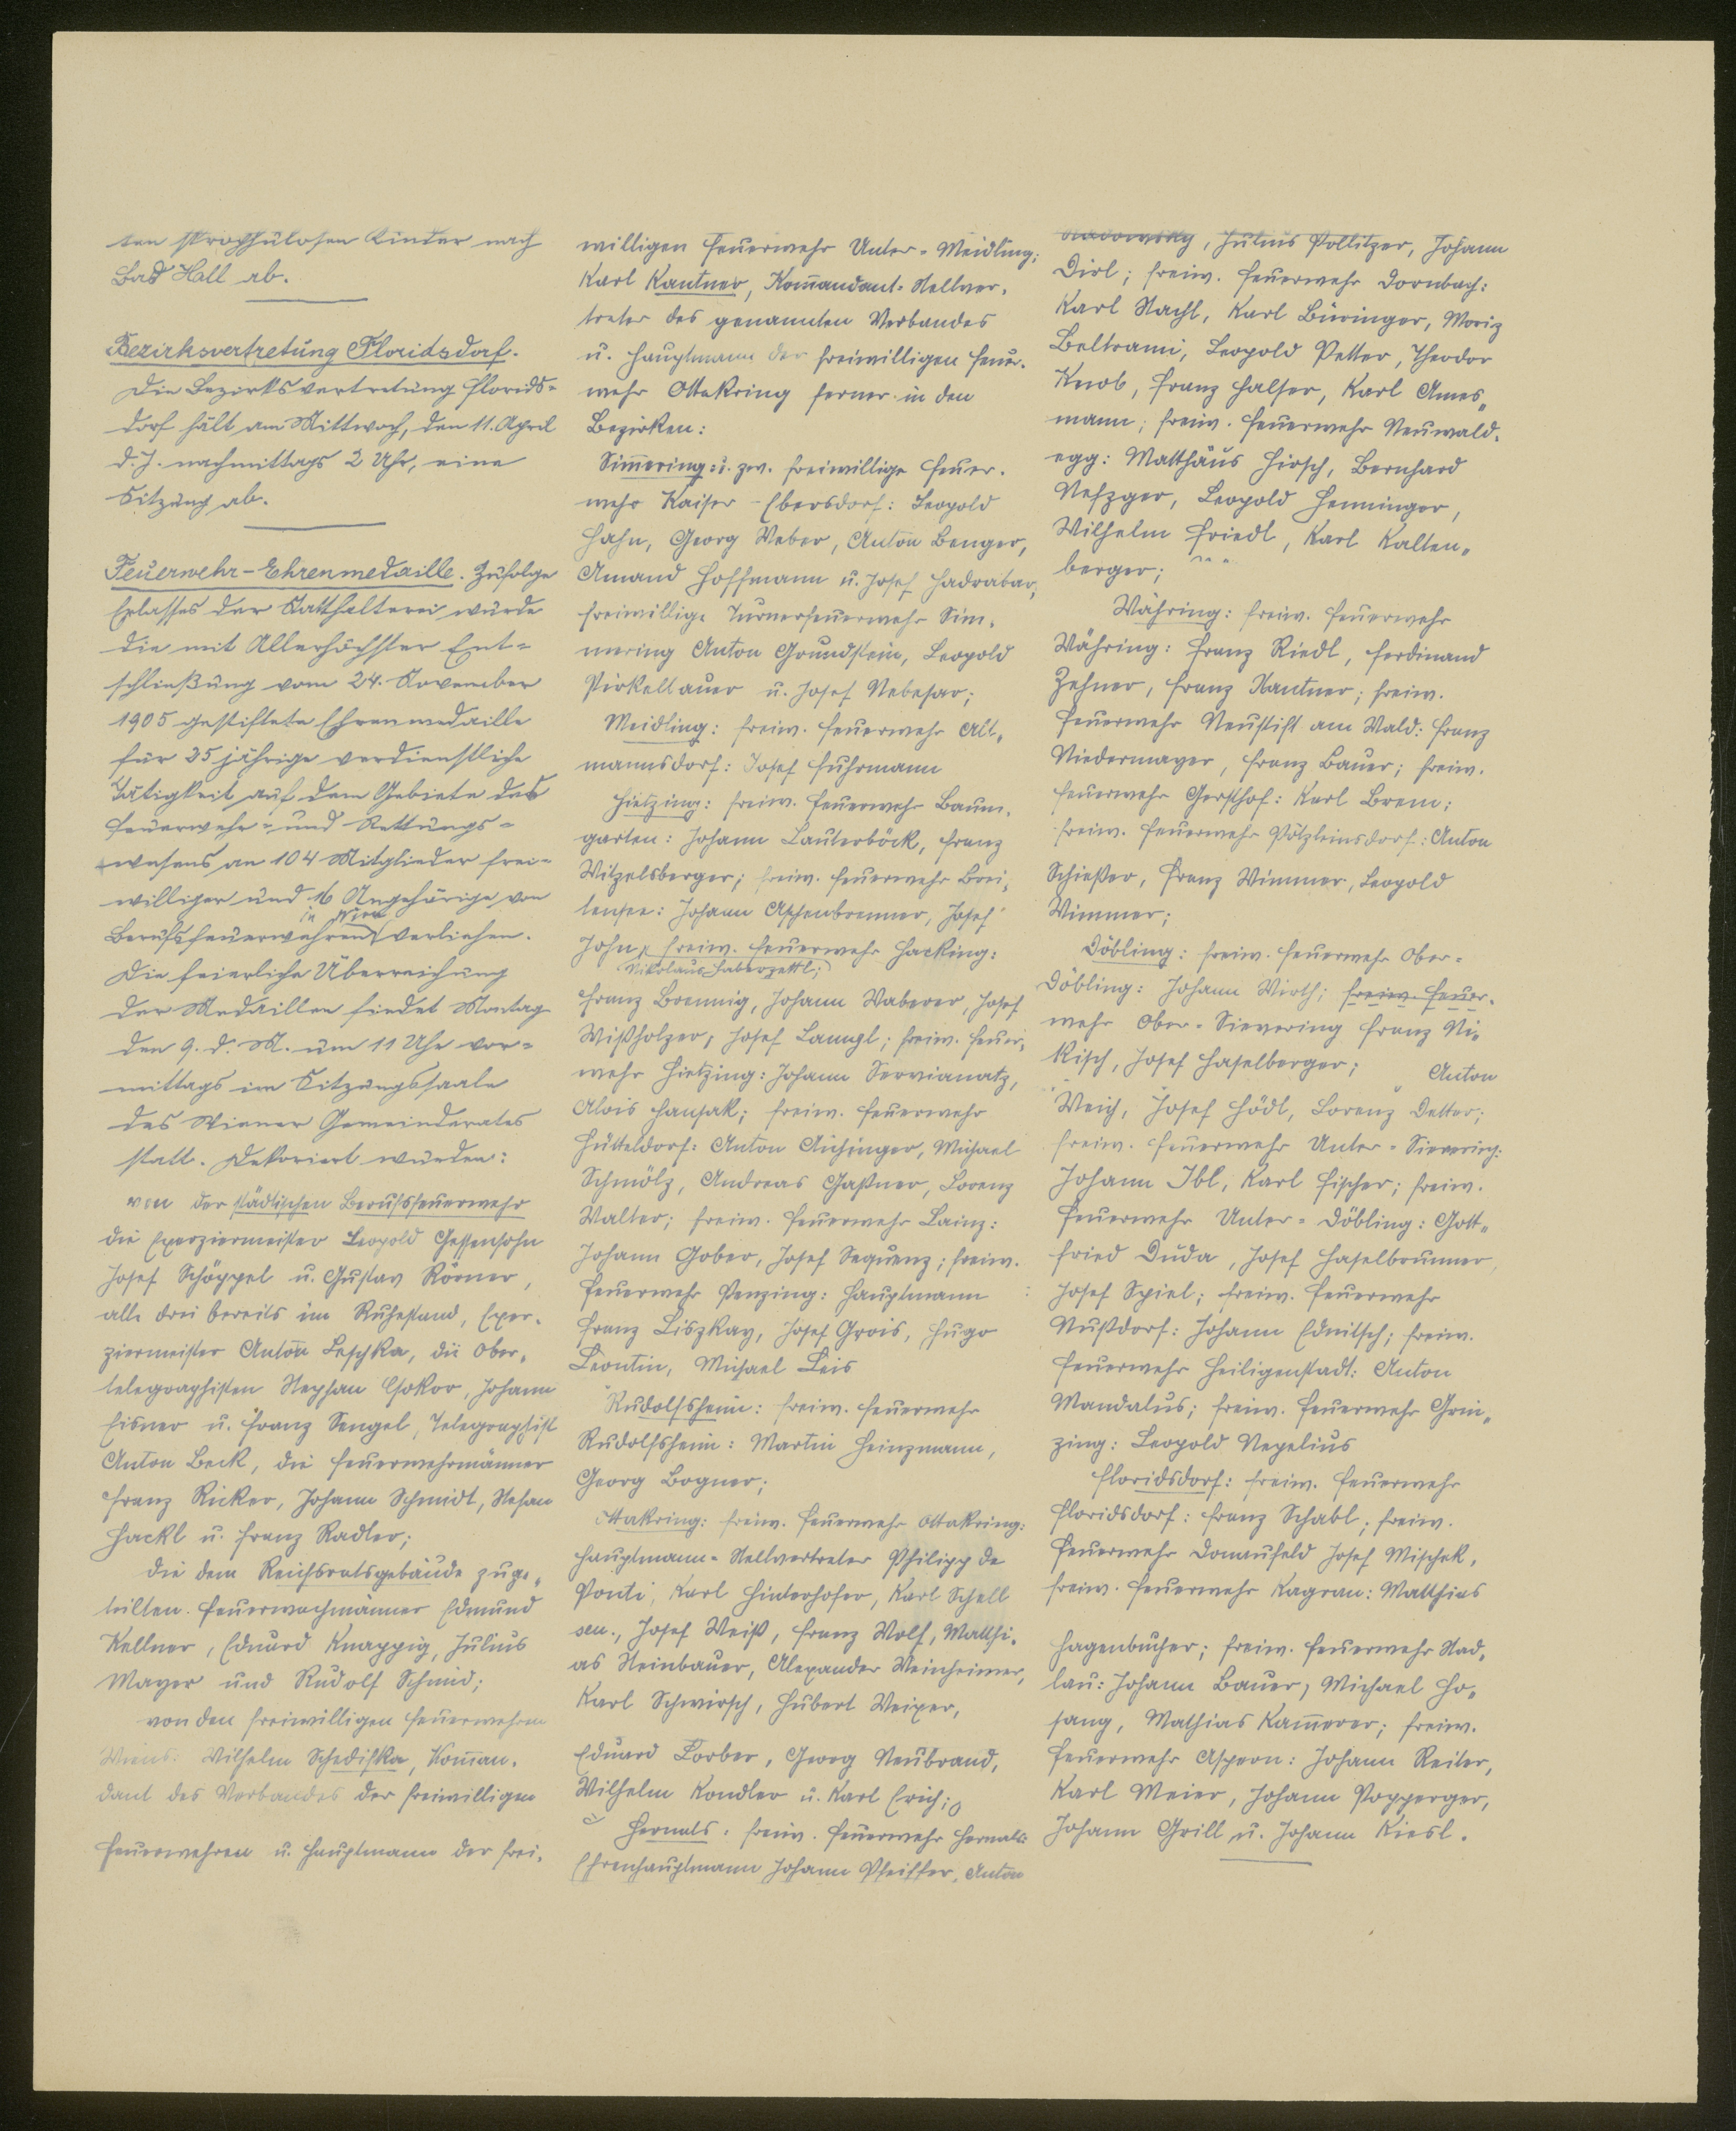 ten skrophülosen Kinder nach
Bad Hall ab.
Bezirksvertretung Floridsdorf.
Die Bezirksvertretung Florids-
dorf hält am Mittwoch, den 11. April
d. J. nachmittags 2 Uhr, eine
Sitzung ab.
Feuerwehr-Ehrenmedaille. Zufolge
Erlasses der Statthalterei wurde
die mit Allerhöchster Ent-
schließung vom 24. November
1905 gestiftete Ehrenmedaille
für 25 jährige verdienstliche
Tätigkeit auf dem Gebiete des
Feuerwehr- und Rettungs-
wesens an 104 Mitglieder frei-
williger und 16 Angehörige von
in Wien
Berufsfeuerwehren verliehen.
Die feierliche Überreichung
der Medaillen findet Montag
den 9. d. M. um 11 Uhr vor-
mittags im Sitzungssaale
des Wiener Gemeinderates
statt. Dekoriert wurden:
von der städtischen Berufsfeuerwehr
die Exerziermeister Leopold Gessensohn
Josef Schöppel u. Gustav Körner,
alle drei bereits im Ruhestand, Exer-
ziermeister Anton Leschka, die Ober-
telegraphisten Stephan Csokor, Johann
Eisner u. Franz Sengel, Telegraphist
Anton Beck, die Feuerwehrmänner
Franz Ricker, Johann Schmidt, Stefan
Hackl u. Franz Radler;
die dem Reichsratsgebäude zuge-
teilten Feuerwachmänner Edmund
Kellner, Eduard Knappig, Julius
Mayer und Rudolf Schmid;
von den freiwilligen Feuerwehren
Wiens: Wilhelm Schediska, Komman-
dant des Verbandes der freiwilligen
Feuerwehren u. Hauptmann der frei-
willigen Feuerwehr Unter-Meidling;
Karl Kantner, Kommandant-Stellver-
treter des genannten Verbandes
u. Hauptmann der freiwilligen Feuer-
wehr Ottakring ferner in den
Bezirken:
Simmering: u. zw. freiwillige Feuer-
wehr Kaiser-Ebersdorf: Leopold
Hahn, Georg Weber, Anton Benger,
Amand Hoffmann u. Josef Hadrabar,
freiwillige Turnerfeuerwehr Sim-
mering Anton Grundstein, Leopold
Pirkellauer u. Josef Nebesar;
Meidling: freiw. Feuerwehr Alt-
mannsdorf: Josef Fuhrmann
Hietzing: freiw. Feuerwehr Baum-
garten: Johann Lauterböck, Franz
Witzelsberger; freiw. Feuerwehr Brei-
tensee: Johann Aschenbrenner, Josef
John, freiw. Feuerwehr Hacking:
Nikolaus Haberzettl;
Franz Brennig, Johann Waberer, Josef
Wißholzer, Josef Lampl; freiw. Feuer-
wehr Hietzing: Johann Servianatz,
Alois Hansak; freiw. Feuerwehr
Hütteldorf: Anton Aichinger, Michael
Schmölz, Andreas Gaßner, Lorenz
Walter; freiw. Feuerwehr Lainz:
Johann Gober, Josef Sequenz; freiw.
Feuerwehr Penzing: Hauptmann
Franz Liszkay, Josef Grois, Hugo
Leontin, Michael Leis
Rudolfsheim: freiw. Feuerwehr
Rudolfsheim: Martin Heinzmann,
Georg Bogner;
Ottakring: freiw. Feuerwehr Ottakring:
Hauptmann-Stellvertreter Philipp de
Ponti, Karl Hinterhofer, Karl Schell
sen., Josef Weiß, Franz Wolf, Matthi-
as Steinbauer, Alexander Weinheimer,
Karl Schwirsch, Hubert Weixer,
Eduard Lorber, Georg Neubrand,
Wilhelm Kondler u. Karl Erich;
Hernals: freiw. Feuerwehr Hernals
Ehrenhauptmann Johann Pfeiffer, Anton
, Julius Pollitzer, Johann
Dirl; freiw. Feuerwehr Dornbach:
Karl Nachl, Karl Büringer, Moriz
Beltrami, Leopold Petter, Theodor
Knob, Franz Halser, Karl Ames-
mann; freiw. Feuerwehr Neuwald-
egg: Matthäus Hirsch, Bernhard
Nefzger, Leopold Henninger,
Wilhelm Friedl, Karl Kalten-
berger;
Währing: freiw. Feuerwehr
Währing: Franz Riedl, Ferdinand
Zehner, Franz Kantner; freiw.
Feuerwehr Neustift am Wald: Franz
Niedermayer, Franz Bauer; freiw.
Feuerwehr Gersthof: Karl Brem;
freiw. Feuerwehr Pötzleinsdorf: Anton
Schießer, Franz Wimmer, Leopold
Wimmer;
Döbling: freiw. Feuerwehr Ober-
Döbling: Johann Wirth; freiw. Feuer-
wehr Ober-Sievering Franz Ni-
kisch, Josef Haselberger; Anton
Weich, Josef Hödl, Lorenz Detter;
freiw. Feuerwehr Unter-Sievering:
Johann Ibl, Karl Fischer; freiw.
Feuerwehr Unter-Döbling: Gott-
fried Duda, Josef Haselbrunner,
Josef Spiel; freiw. Feuerwehr
Nußdorf: Johann Ednitsch; freiw.
Feuerwehr Heiligenstadt: Anton
Mandalus; freiw. Feuerwehr Grin-
zing: Leopold Nepelius
Floridsdorf: freiw. Feuerwehr
Floridsdorf: Franz Schabl; freiw.
Feuerwehr Donaufeld Josef Mischek,
freiw. Feuerwehr Kagran: Matthias
Hagenbucher; freiw. Feuerwehr Stad-
lau: Johann Bauer, Michael Ho-
sang, Mathias Kammerer; freiw.
Feuerwehr Aspern: Johann Reiter,
Karl Meier, Johann Popperger,
Johann Grill u. Johann Kiesl.